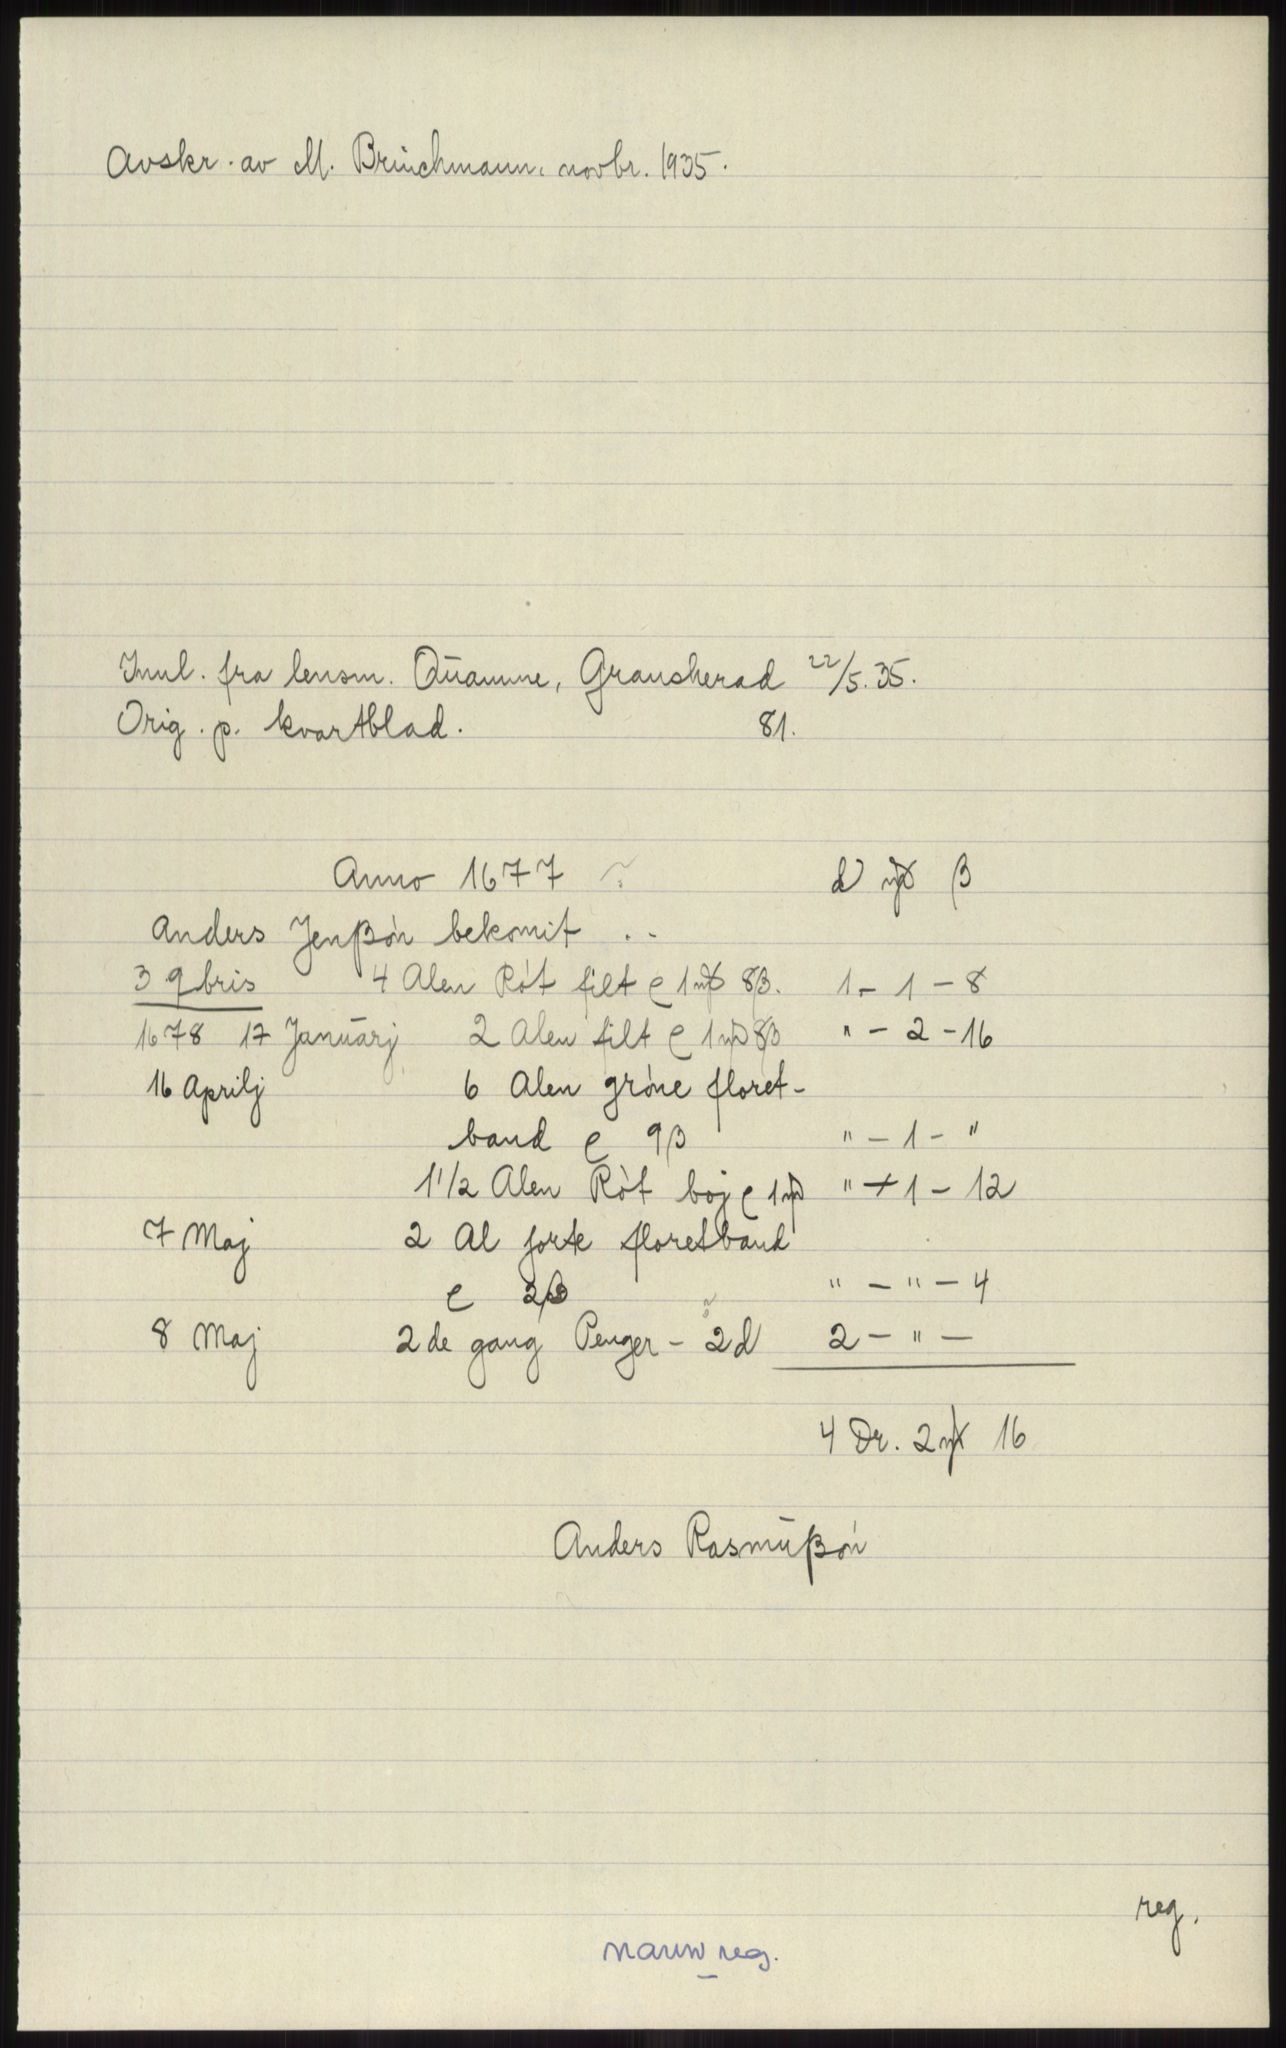 Avskr. av M. Brüchmann. novbr. 1935.
Innl. fra lensm. Qūamme, Gransherad 22/5.35.
Orig. p. kvartblad. 81.
Anno 1677 d mƒ β
Anders Jenβón bekomit ..
3 9bris 4 Alen Rót filt e 1 mƒ 8β. 1 - 1 - 8
1678 17 Janūarj 2 Alen filt e 1 mƒ 8β " - 2 - 16
16 Aprilj 6 Alen gróne floret-
band e 9β " - 1 - "
1 1/2 Alen Rót boj e 1 mƒ " - 1 - 12
7 Maj 2 Al sorte floretband
e 2β " - " - 4
8 Maj 2 de gang Penger - 2 d 2 - " -
4 Dr. 2 mƒ 16
Anders Rasmūβón
reg.
navn reg.